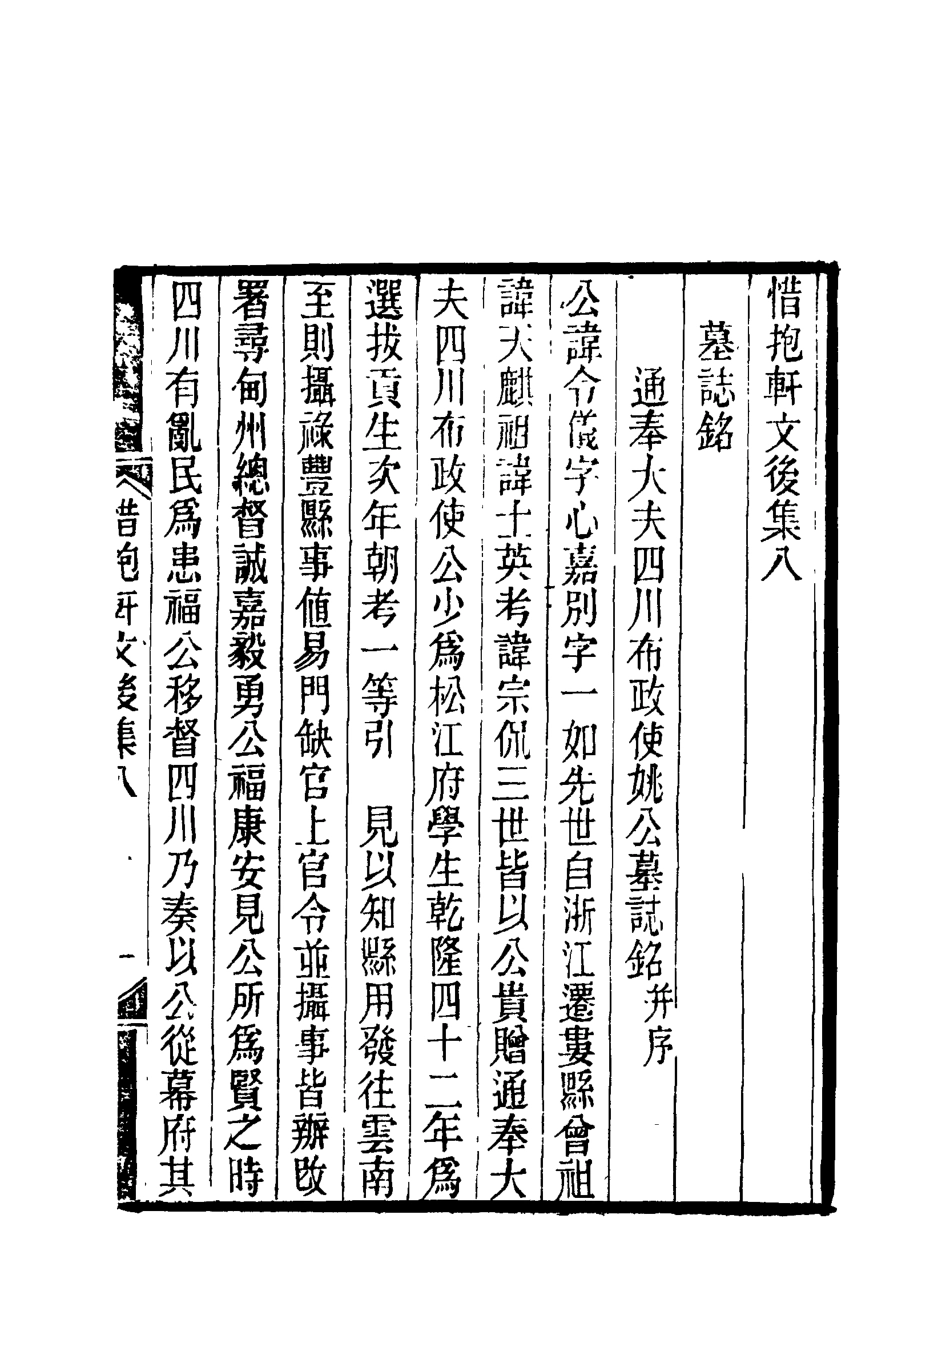 惜抱軒文後集八
墓誌銘
通奉大夫四川布政使姚公墓誌銘并序
公諱令儀字心嘉別字一如先世自浙江遷婁縣曾祖
諱天麒祖諱士英考諱宗侃三世皆以公貴贈通奉大
夫四川布政使公少爲松江府學生乾隆四十二年爲
選拔貢生次年朝考一等引　見以知縣用發往雲南
至則攝祿豐縣事値易門缺官上官令並攝事皆辦改
署尋甸州總督誠嘉毅勇公福康安見公所爲賢之時
四川有亂民爲患福公移督四川乃奏以公從幕府其
惜抱軒文後集八
一